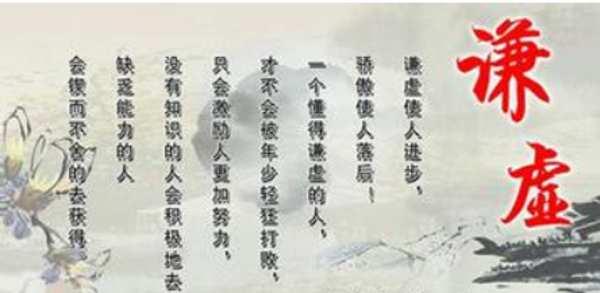 谦虚
谦虚使人进步，
骄傲使人落后！
一个懂得谦虚的人，
才不会被年少轻狂打败，
只会激励人更加努力，
没有知识的人会积极地去
缺乏能力的人
会锲而不舍的去获得